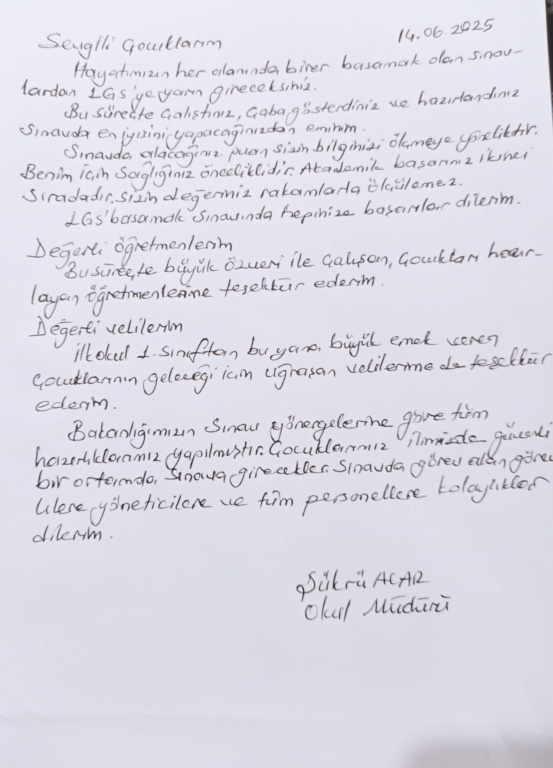 14.06.2025
Sevgili Çocuklarım
Hayatımızın her alanında birer basamak olan sınav-
lardan LGS'ye yarın gireceksiniz.
Bu süreçte çalıştınız, çaba gösterdiniz ve hazırlandınız
Sınavda en iyisini yapacağınızdan eminim.
Sınavda alacağınız puan sizin bilginizi ölçmeye yöneliktir.
Benim için sağlığınız önceliklidir. Akademik başarınız ikinci
sıradadır. Sizin değeriniz rakamlarla ölçülemez.
LGS' basamak sınavında hepinize başarılar dilerim.
Değerli öğretmenlerim
Bu süreçte büyük özveri ile çalışan, çocukları hazır-
layan öğretmenlerime teşekkür ederim.
Değerli velilerim
İlkokul 1. sınıftan bu yana büyük emek veren
çocuklarının geleceği için uğraşan velilerime de teşekkür
ederim.
Bakanlığımızın sınav yönergelerine göre tüm
hazırlıklarımız yapılmıştır. Çocuklarımız ilimizde güvenli
bir ortamda, sınava girecekler. Sınavda görev alan görev
lilere, yöneticilere ve tüm personellere kolaylıklar
dilerim.
Şükrü ACAR
Okul Müdürü